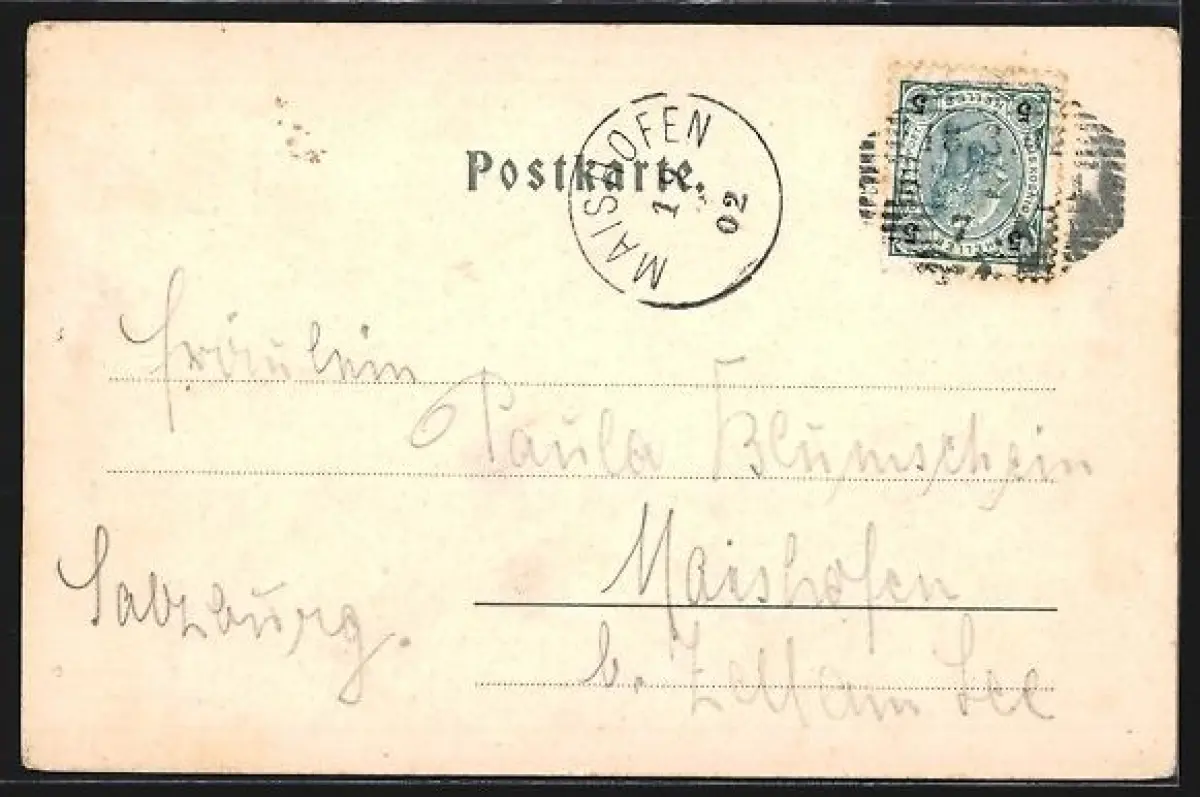 Postkarte.
MAISHOFEN
02
5 5
5 5
7
Fräulein
Paula Blumschein
Maishofen
b. Zell am See
Salzburg.